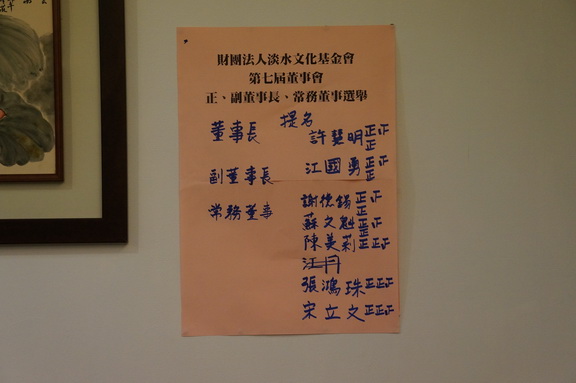 財團法人淡水文化基金會
第七屆董事會
正、副董事長、常務董事選舉
提名
董事長 許慧明 正正正
副董事長 江國勇 正正正
常務董事 謝德錫 正正正
蘇文魁 正正
陳美莉 正正正
江丹
張鴻珠 正正正
宋立文 正正正